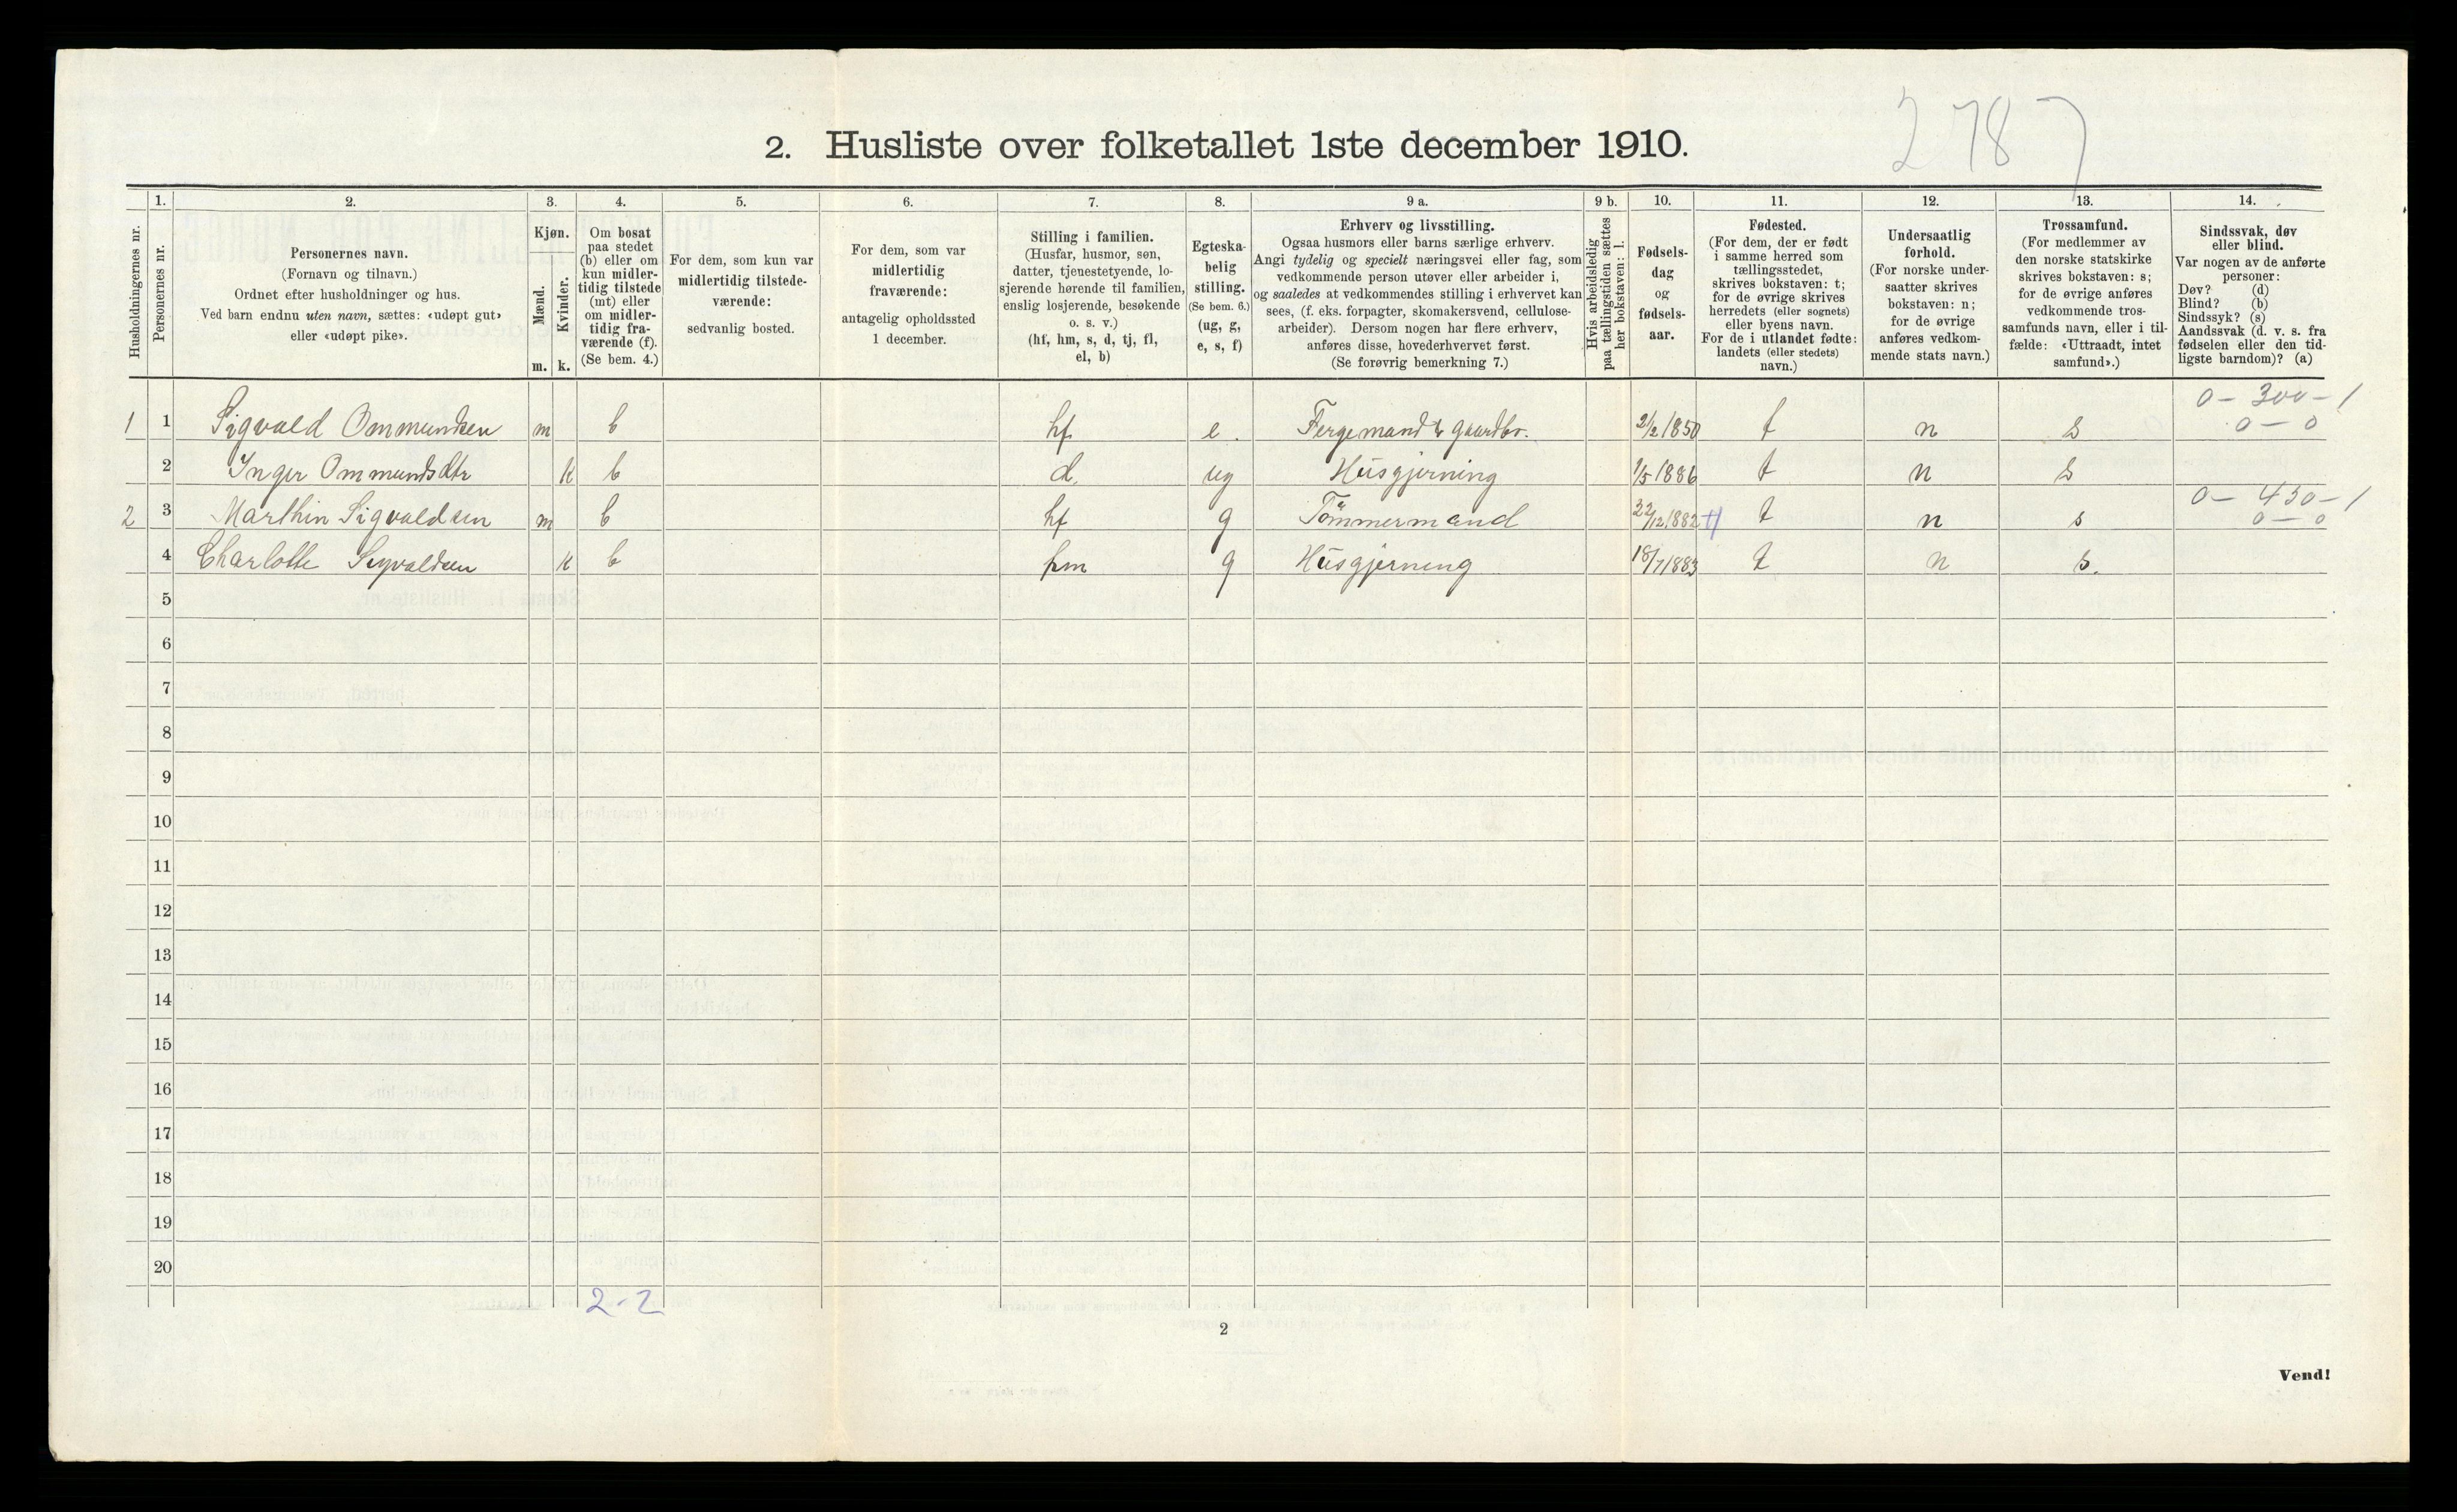 2787
2. Husliste over folketallet 1ste december 1910.
Husholdningernes nr.
1.
Personernes nr.
2.
Personernes navn.
(Fornavn og tilnavn.)
Ordnet efter husholdninger og hus.
Ved barn endnu uten navn, sættes: «udøpt gut»
eller «udøpt pike».
3.
Kjøn.
Mænd.
Kvinder.
m. k.
4.
Om bosat
paa stedet
(b) eller om
kun midler-
tidig tilstede
(mt) eller
om midler-
tidig fra-
værende (f).
(Se bem. 4.)
5.
For dem, som kun var
midlertidig tilstede-
værende:
sedvanlig bosted.
6.
For dem, som var
midlertidig
fraværende:
antagelig opholdssted
1 december.
7.
Stilling i familien.
(Husfar, husmor, søn,
datter, tjenestetyende, lo-
sjerende hørende til familien,
enslig losjerende, besøkende
o. s. v.)
(hf, hm, s, d, tj, fl,
el, b)
8.
Egteska-
belig
stilling.
(Se bem. 6.)
(ug, g,
e, s, f)
9 a.
Erhverv og livsstilling.
Ogsaa husmors eller barns særlige erhverv.
Angi tydelig og specielt næringsvei eller fag, som
vedkommende person utøver eller arbeider i,
og saaledes at vedkommendes stilling i erhvervet kan
sees, (f. eks. forpagter, skomakersvend, cellulose-
arbeider). Dersom nogen har flere erhverv,
anføres disse, hovederhvervet først.
(Se forøvrig bemerkning 7.)
9 b.
Hvis arbeidsledig
paa tællingstiden sættes
her bokstaven: l.
10.
Fødsels-
dag
og
fødsels-
aar.
11.
Fødested.
(For dem, der er født
i samme herred som
tællingsstedet,
skrives bokstaven: t;
for de øvrige skrives
herredets (eller sognets)
eller byens navn.
For de i utlandet fødte:
landets (eller stedets)
navn.)
12.
Undersaatlig
forhold.
(For norske under-
saatter skrives
bokstaven: n;
for de øvrige
anføres vedkom-
mende stats navn.)
13.
Trossamfund.
(For medlemmer av
den norske statskirke
skrives bokstaven: s;
for de øvrige anføres
vedkommende tros-
samfunds navn, eller i til-
fælde: «Uttraadt, intet
samfund».)
14.
Sindssvak, døv
eller blind.
Var nogen av de anførte
personer:
Døv? (d)
Blind? (b)
Sindssyk? (s)
Aandssvak (d. v. s. fra
fødselen eller den tid-
ligste barndom)? (a)
0 - 300 - 1
1 1 Sigvald Ommundsen m b hf e. Fergemand & gaardbr. 2/2 1850 t n s 0 - 0
2 Inger Ommundsdtr k b d. ug Husgjerning 1/5 1886 t n s
0 - 450 - 1
2 3 Marthin Sigvaldsen m b hf g Tömmermand 22/12 1882 t n s 0 - 0
4 Charlotte Sigvaldsen k b hm g Husgjerning 18/7 1883 t n s.
5
6
7
8
9
10
11
12
13
14
15
16
17
18
19
20
2-2
2
Vend!